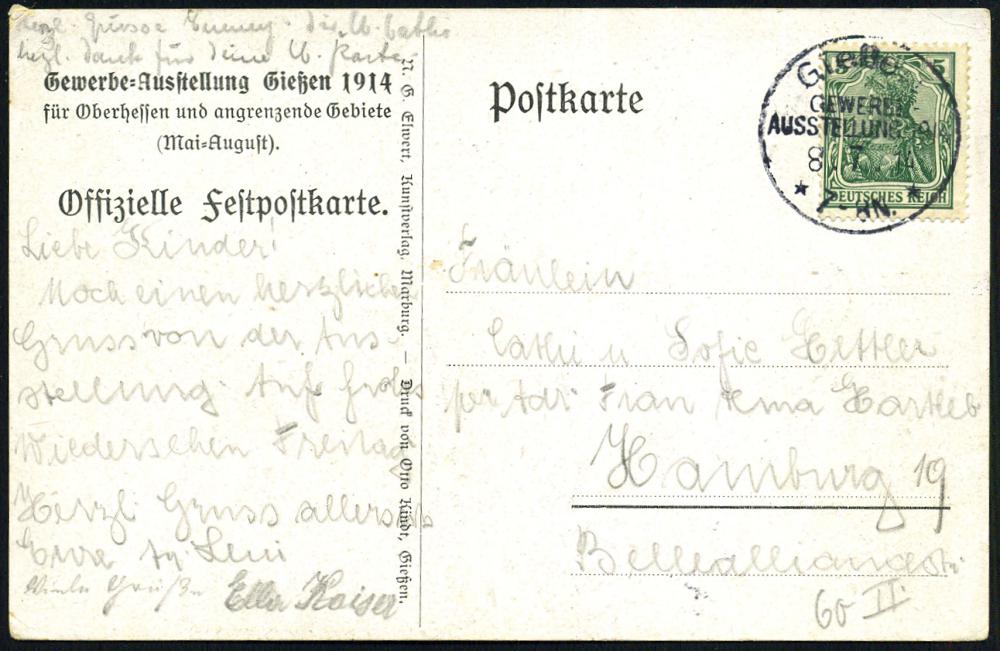 herzl. Grüsse
herzl. Dank für deine
Gewerbe=Ausstellung Gießen 1914
für Oberhessen und angrenzende Gebiete
(Mai=August).
Offizielle Festpostkarte.
Liebe Kinder!
Noch einen herzlichen
Gruss von der Aus-
stellung Auf frohes
Wiedersehen Freitag
Herzl. Gruss allerseits
Leni
Viele Grüße Ella Kaiser
N. G. Elwert, Kunstverlag, Marburg. — Druck von Otto Kindt, Gießen.
Postkarte
GEWERBE
AUSSTELLUNG
8. 7. 14
* 7- 8N. *
5
DEUTSCHES REICH
Fräulein
u Sofie Hettler
per Adr. Frau
Hamburg 19
Bellealliancestr.
60 II.